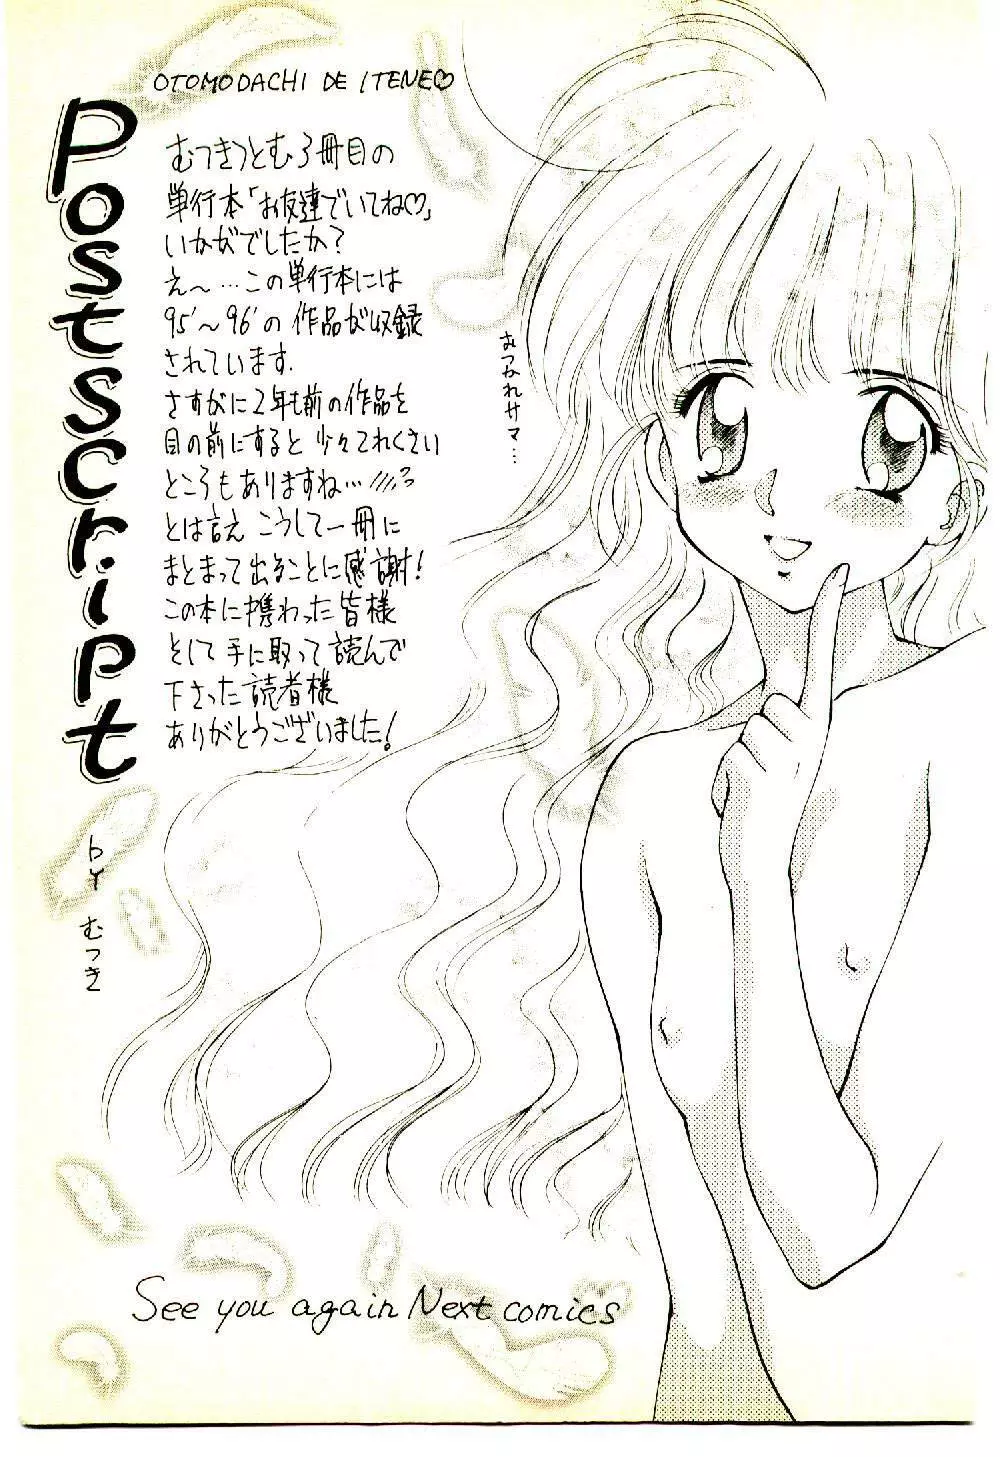 OTOMODACHI DE ITENE♡
Postscript
むつきつとむ3冊目の
単行本「お友達でいてね♡」
いかがでしたか？
え〜…この単行本には
95'〜96'の作品が収録
されています.
さすがに2年も前の作品を
目の前にすると少々てれくさい
ところもありますね…
とは言え こうして一冊に
まとまって出ることに感謝!
この本に携わった皆様
そして手に取って読んで
下さった読者様
ありがとうございました!
by むつき
おつかれサマ…
See you again Next comics